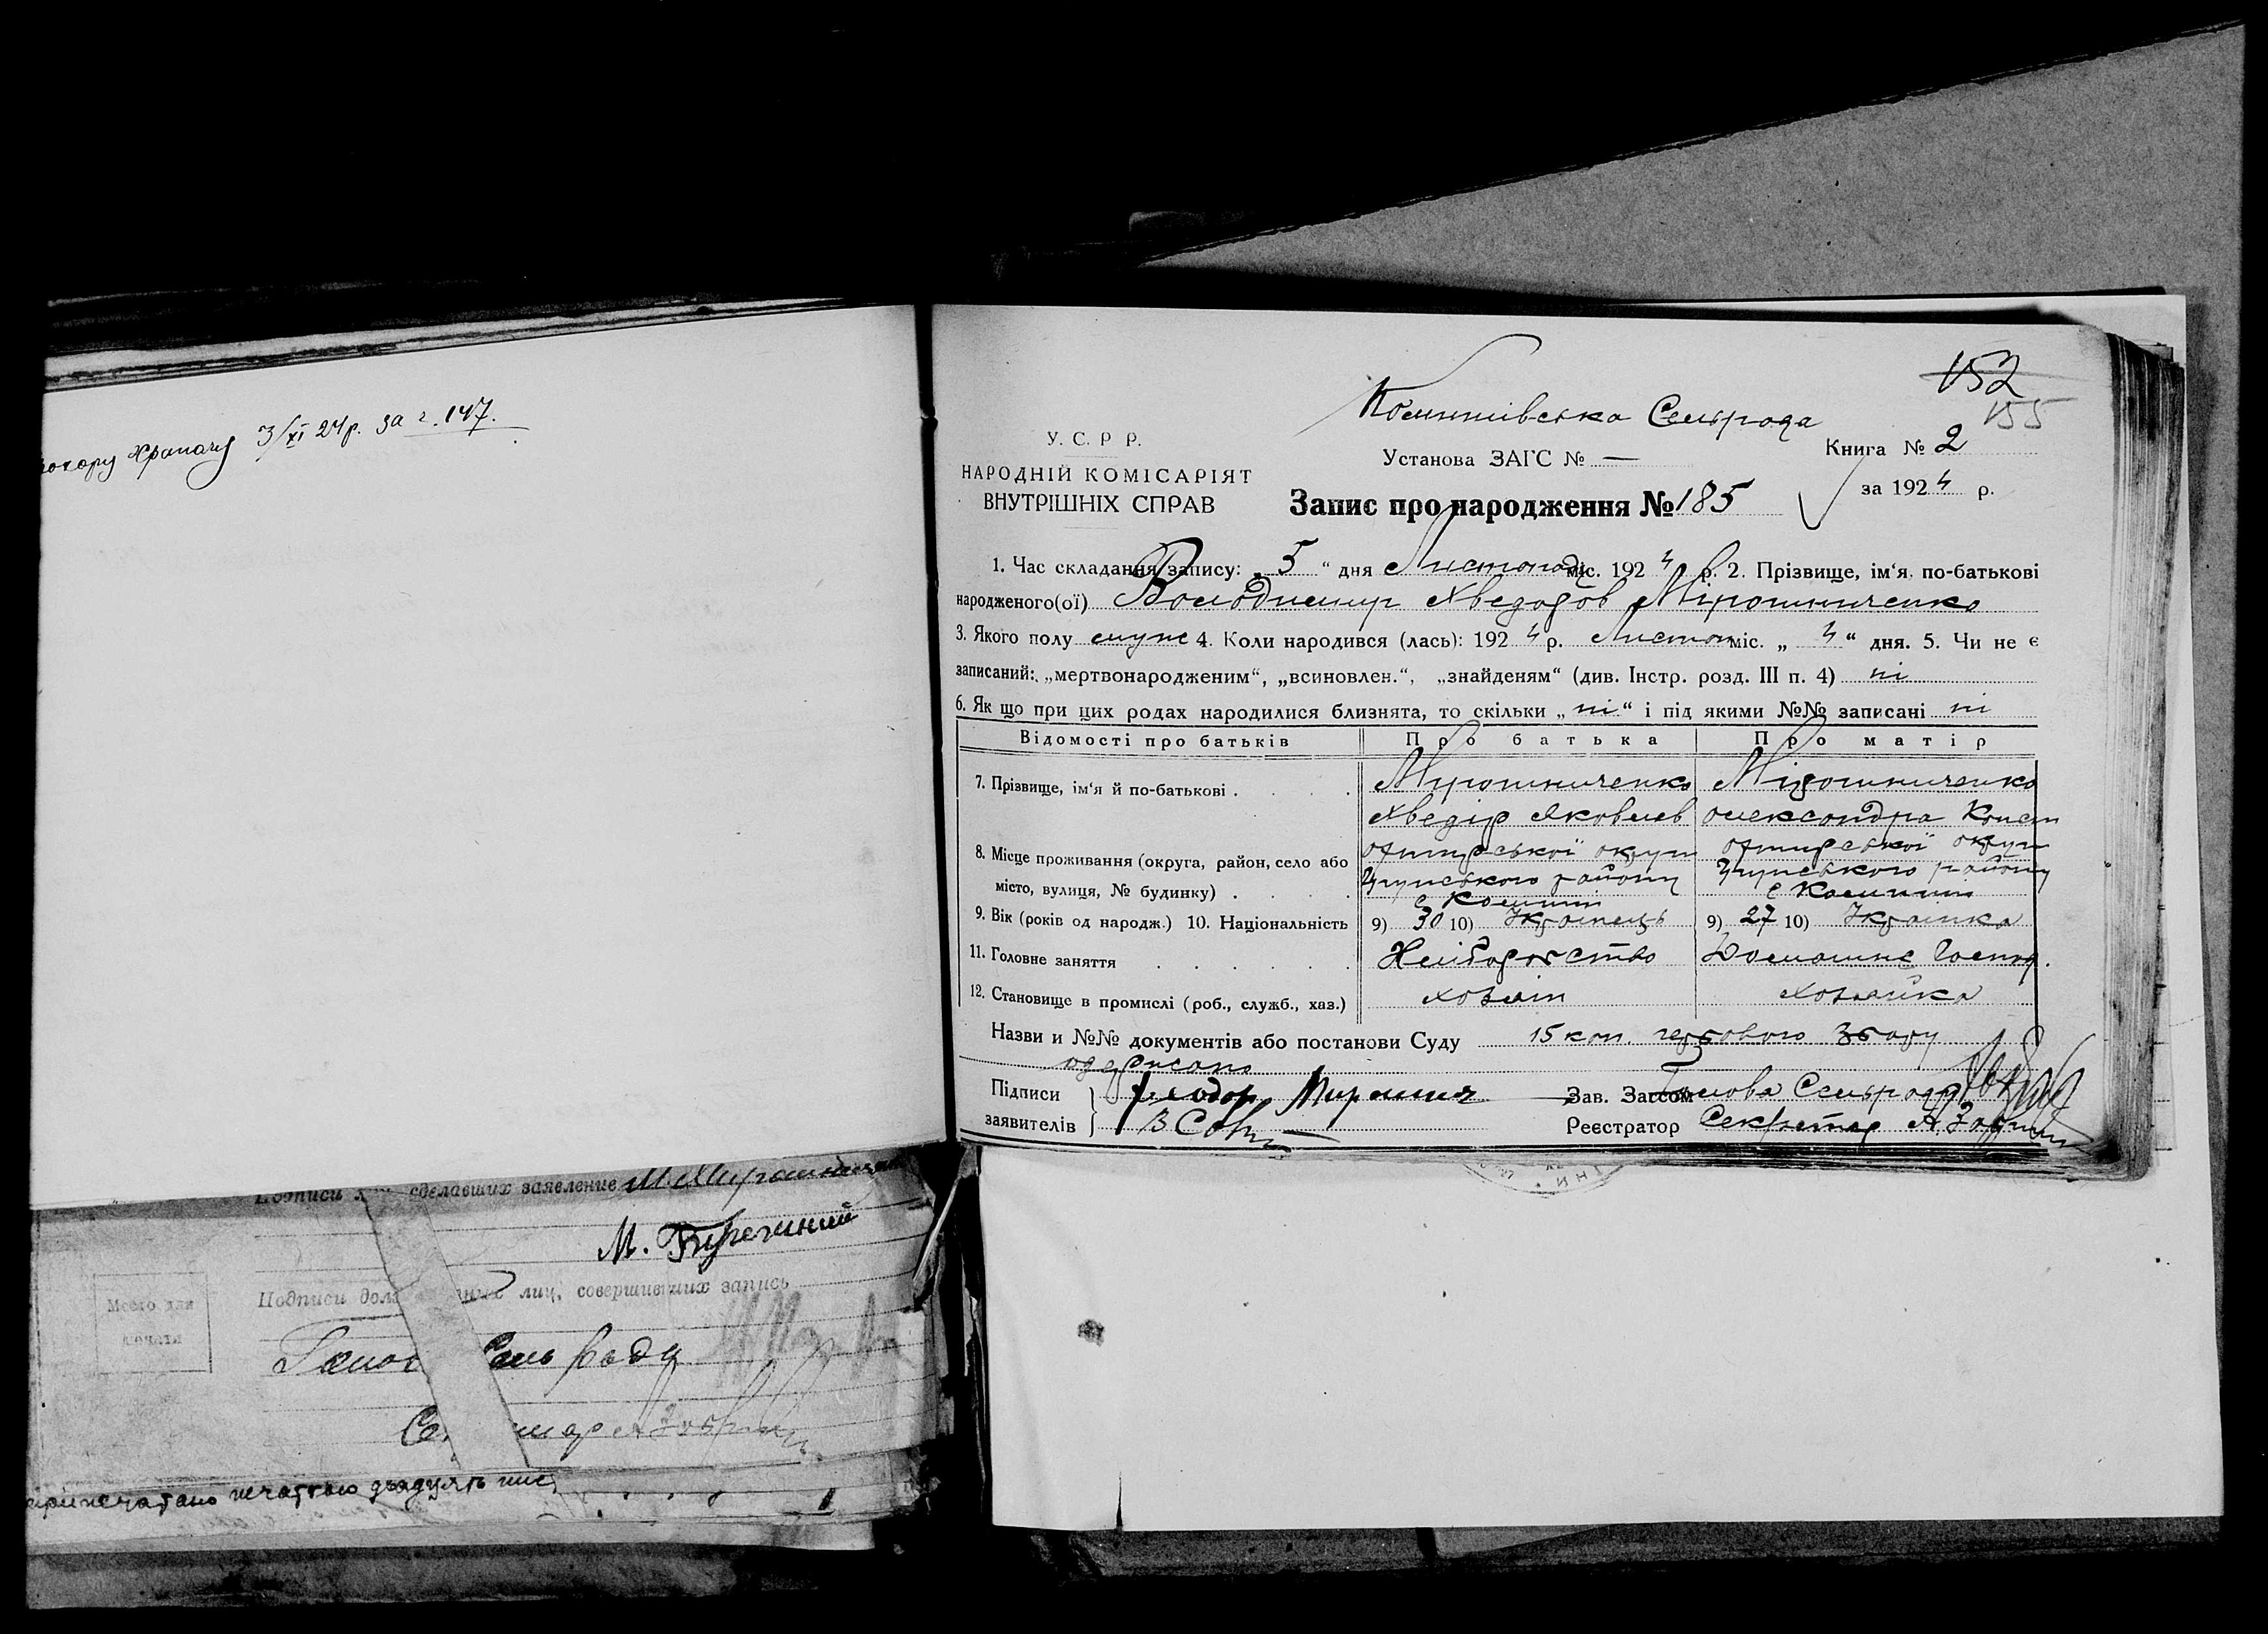 Хропачу 3/XI 24 р. за г. 147.
Подписи сделавших заявление М. Мирошнич
М. Биречний
Место для печати
Подписи лиц, совершивших запись
Сель Ради
печаткою двадцять
152
155
Сельрада
У. С. Р Р.
НАРОДНІЙ КОМІСАРІЯТ
ВНУТРІШНІХ СПРАВ
Установа ЗАГС № —
Книга № 2
за 1924 р.
Запис про народження № 185
1. Час складання запису: „5“ дня Листопада міс. 1924 р. 2. Прізвище, ім‘я, по-батькові
народженого(ої) Володимир Хведоров Мірошниченко
3. Якого полу муже 4. Коли народився (лась): 1924 р. Листоп міс. „4“ дня. 5. Чи не є
записаний: „мертвонародженим“, „всиновлен.“, „знайденям“ (див. Інстр. розд. III п. 4) ні
6. Як що при цих родах народилися близнята, то скільки „ні“ і під якими №№ записані ні
Відомості про батьків Про батька Про матір
7. Прізвище, ім‘я й по-батькові Мірошниченко Мірошниченко
Хведір Яковлев Олександра Конст
8. Місце проживання (округа, район, село або місто, вулиця, № будинку)
округи округи
району району
9. Вік (років од народж.) 10. Національність 9) 30 10) Українець 9) 27 10) Українка
11. Головне заняття Хліборобство Домашнє Господ.
12. Становище в промислі (роб., служб., хаз.) хозяїн хозяйка
Назви и №№ документів або постанови Суду 15 коп. гербового збору
одержано
Підписи заявителів Феодор Мирошнич
Зав. Загсом Голова Сельради
Реєстратор Секретар